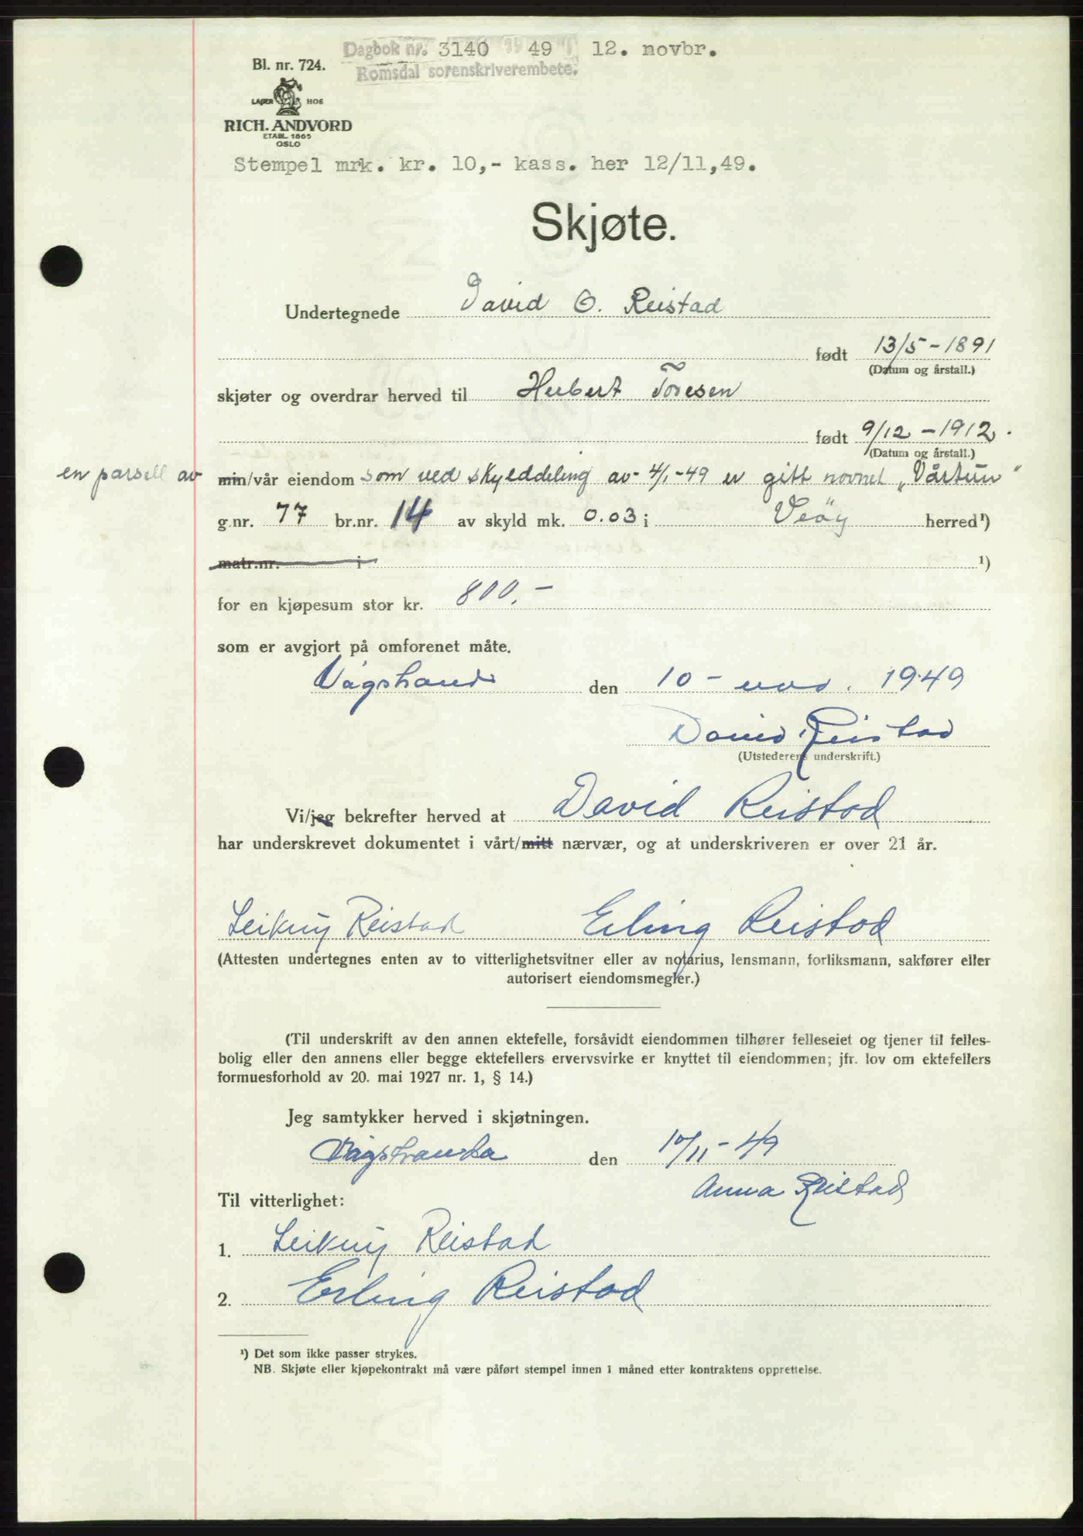 Dagbok nr. 3140 1949 12. novbr.
Romsdal sorenskriverembete.
Bl. nr. 724.
LAGER HOS
RICH. ANDVORD
ETABL. 1865
OSLO
Stempel mrk. kr. 10,- kass. her 12/11,49.
Skjøte.
Undertegnede David O. Reistad
født 13/5-1891
(Datum og årstall.)
skjøter og overdrar herved til Herbert Tovesen
født 9/12-1912.
(Datum og årstall.)
en parsell av min/vår eiendom som ved skylddeling av 4/1-49 er gitt navnet „Vårtun"
g.nr. 77 br.nr. 14 av skyld mk. 0.03 i Veöy herred¹)
matr.nr. i ¹)
for en kjøpesum stor kr. 800,-
som er avgjort på omforenet måte.
Vågstranda den 10 - nov. 1949
David Reistad
(Utstederens underskrift.)
Vi/jeg bekrefter herved at David Reistad
har underskrevet dokumentet i vårt/mitt nærvær, og at underskriveren er over 21 år.
Leikny Reistad Erling Reistad
(Attesten undertegnes enten av to vitterlighetsvitner eller av notarius, lensmann, forliksmann, sakfører eller
autorisert eiendomsmegler.)
(Til underskrift av den annen ektefelle, forsåvidt eiendommen tilhører felleseiet og tjener til felles-
bolig eller den annens eller begge ektefellers ervervsvirke er knyttet til eiendommen; jfr. lov om ektefellers
formuesforhold av 20. mai 1927 nr. 1, § 14.)
Jeg samtykker herved i skjøtningen.
Vågstranda den 10/11-49
Anna Reistad
Til vitterlighet:
1. Leikny Reistad
2. Erling Reistad
¹) Det som ikke passer strykes.
NB. Skjøte eller kjøpekontrakt må være påført stempel innen 1 måned etter kontraktens opprettelse.